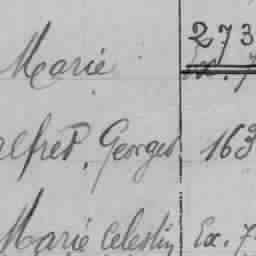 Marie 273
Ex. 7
alfred, Georges 163
Marie Celestin Ex. 7